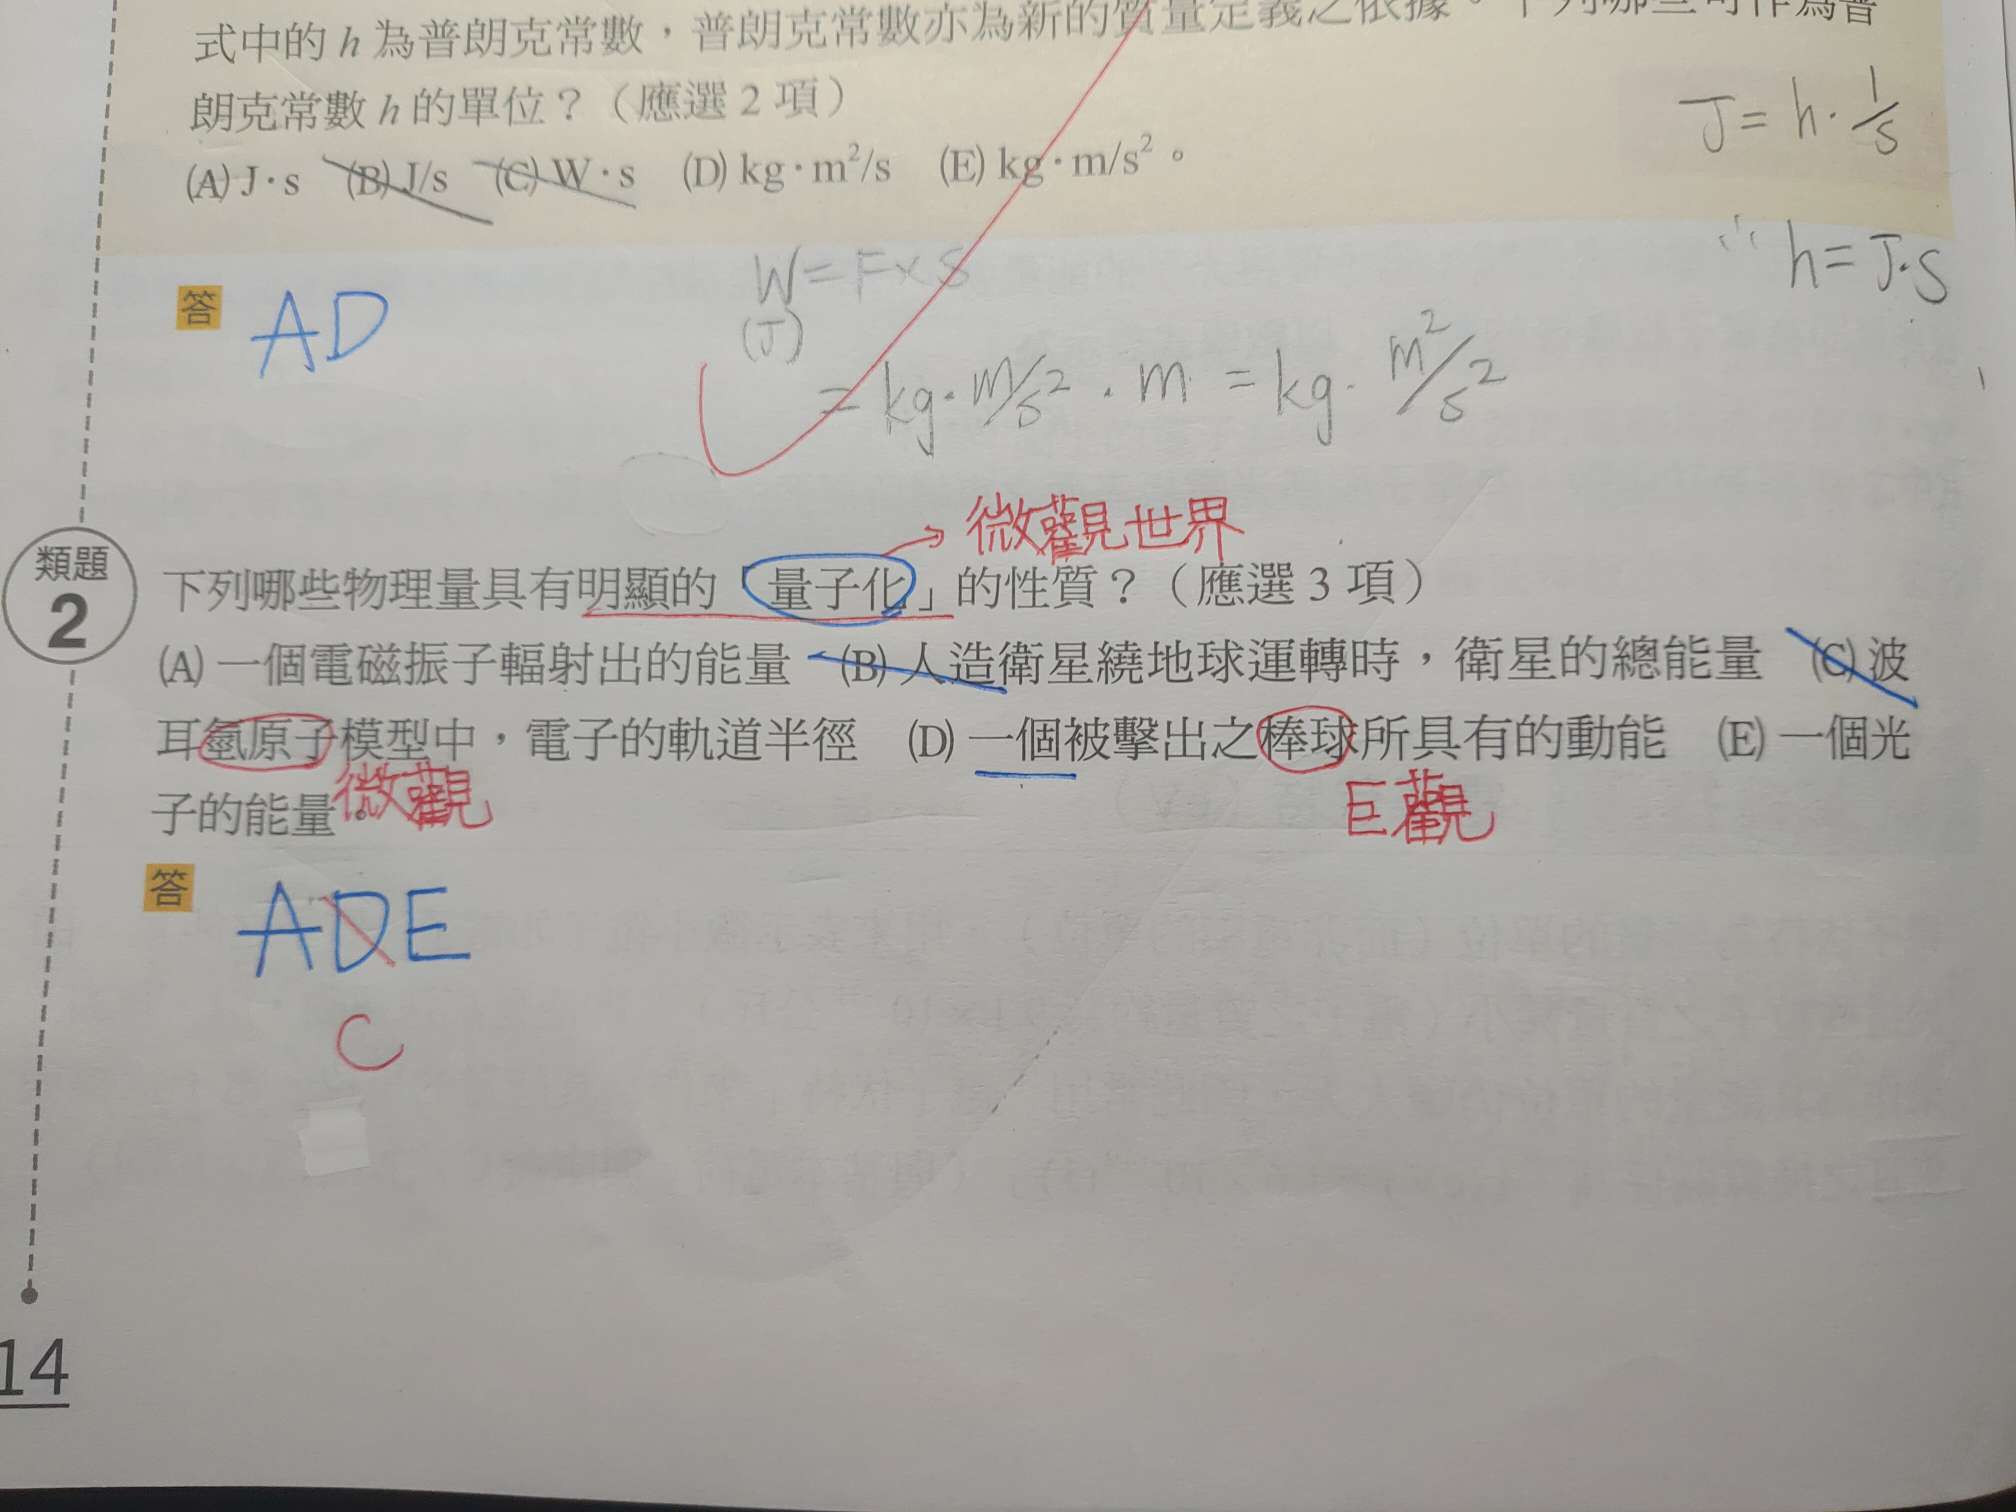 式中的 h 為普朗克常數，普朗克常數亦為新的質量定義之依據。下列哪些可作為普
朗克常數 h 的單位？（應選 2 項）
J = h · 1/s
(A) J · s (B) J/s (C) W · s (D) kg · m²/s (E) kg · m/s²。
∴ h = J · s
答 AD
W = F × S
(J)
= kg · m/s² · m = kg · m²/s²
微觀世界
類題 2
下列哪些物理量具有明顯的「量子化」的性質？（應選 3 項）
(A) 一個電磁振子輻射出的能量 (B) 人造衛星繞地球運轉時，衛星的總能量 (C) 波
耳氫原子模型中，電子的軌道半徑 (D) 一個被擊出之棒球所具有的動能 (E) 一個光
子的能量。
微觀
巨觀
答 ADE
C
14